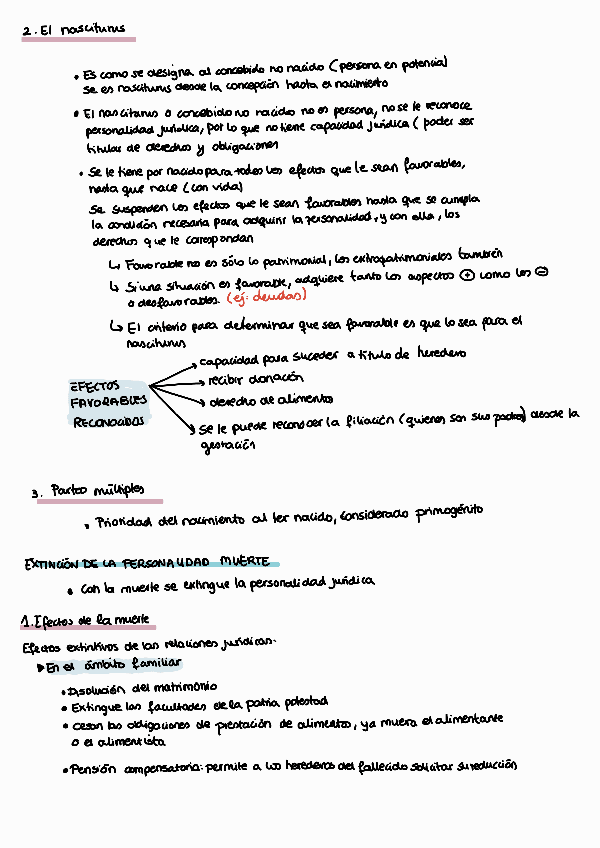 2. El nasciturus
• Es como se designa al concebido no nacido (persona en potencia)
Se es nasciturus desde la concepción hasta el nacimiento
• El nasciturus o concebido no nacido no es persona, no se le reconoce
personalidad jurídica, por lo que no tiene capacidad jurídica (poder ser
titular de derecho y obligaciones
• Se le tiene por nacido para todos los efectos que le sean favorables,
hasta que nace (con vida)
Se suspenden los efectos que le sean favorables hasta que se cumpla
la condición necesaria para adquirir la personalidad, y con ella, los
derechos que le correspondan
↳ Favorable no es sólo lo patrimonial, los extrapatrimoniales también
↳ Si una situación es favorable, adquiere tanto los aspectos ⊕ como los ⊖
o desfavorables. (ej: deudas)
↳ El criterio para determinar que sea favorable es que lo sea para el
nasciturus
EFECTOS
FAVORABLES
RECONOCIDOS
capacidad para suceder a título de heredero
recibir donación
derecho de alimento
Se le puede reconocer la filiación (quienes son sus padres) desde la
gestación
3. Partos múltiples
• Prioridad del nacimiento al 1er nacido, considerado primogénito
EXTINCIÓN DE LA PERSONALIDAD MUERTE
• Con la muerte se extingue la personalidad jurídica
1. Efectos de la muerte
Efectos extintivos de las relaciones jurídicas.
▶ En el ámbito familiar
• Disolución del matrimonio
• Extingue las facultades de la patria potestad
• Cesan las obligaciones de prestación de alimentos, ya muera el alimentante
o el alimentista
• Pensión compensatoria: permite a los herederos del fallecido solicitar su reducción